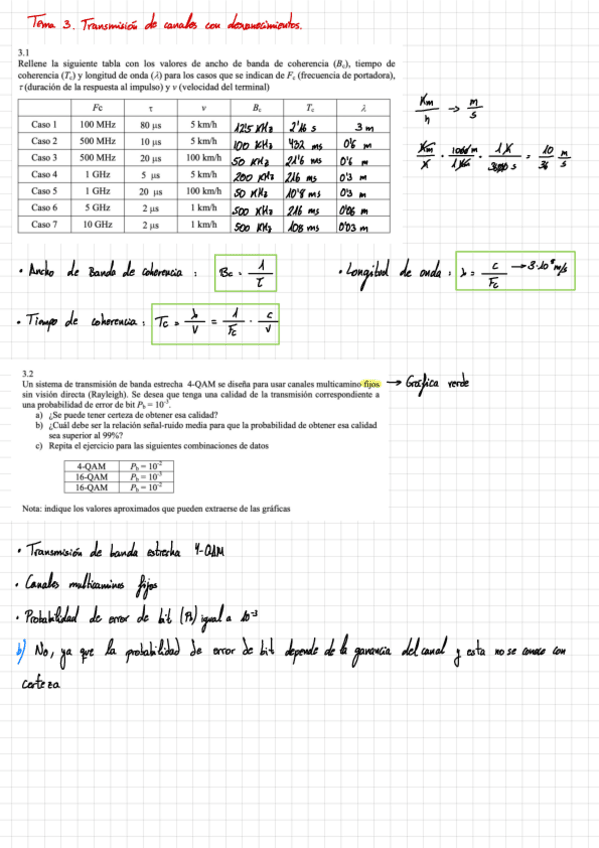 Tema 3. Transmisión de canales con desvanecimientos.
3.1
Rellene la siguiente tabla con los valores de ancho de banda de coherencia (Bc), tiempo de
coherencia (Tc) y longitud de onda (λ) para los casos que se indican de Fc (frecuencia de portadora),
τ (duración de la respuesta al impulso) y v (velocidad del terminal)
Fc τ v Bc Tc λ
Caso 1 100 MHz 80 μs 5 km/h 12'5 KHz 2'16 s 3 m
Caso 2 500 MHz 10 μs 5 km/h 100 KHz 432 ms 0'6 m
Caso 3 500 MHz 20 μs 100 km/h 50 KHz 21'6 ms 0'6 m
Caso 4 1 GHz 5 μs 5 km/h 200 KHz 216 ms 0'3 m
Caso 5 1 GHz 20 μs 100 km/h 50 KHz 10'8 ms 0'3 m
Caso 6 5 GHz 2 μs 1 km/h 500 KHz 216 ms 0'06 m
Caso 7 10 GHz 2 μs 1 km/h 500 KHz 108 ms 0'03 m
Km/h → m/s
Km/h · 1000 m/1 Km · 1 h/3600 s = 10/36 m/s
• Ancho de Banda de coherencia : Bc = 1/τ
• Longitud de onda : λ = c/Fc → 3·10⁸ m/s
• Tiempo de coherencia : Tc = λ/v = 1/Fc · c/v
3.2
Un sistema de transmisión de banda estrecha 4-QAM se diseña para usar canales multicamino fijos → Gráfica verde
sin visión directa (Rayleigh). Se desea que tenga una calidad de la transmisión correspondiente a
una probabilidad de error de bit Pb = 10⁻³.
a) ¿Se puede tener certeza de obtener esa calidad?
b) ¿Cuál debe ser la relación señal-ruido media para que la probabilidad de obtener esa calidad
sea superior al 99%?
c) Repita el ejercicio para las siguientes combinaciones de datos
4-QAM Pb = 10⁻²
16-QAM Pb = 10⁻³
16-QAM Pb = 10⁻²
Nota: indique los valores aproximados que pueden extraerse de las gráficas
• Transmisión de banda estrecha 4-QAM
• Canales multicaminos fijos
• Probabilidad de error de bit (Pb) igual a 10⁻³
b) No, ya que la probabilidad de error de bit depende de la ganancia del canal y esta no se conoce con
certeza